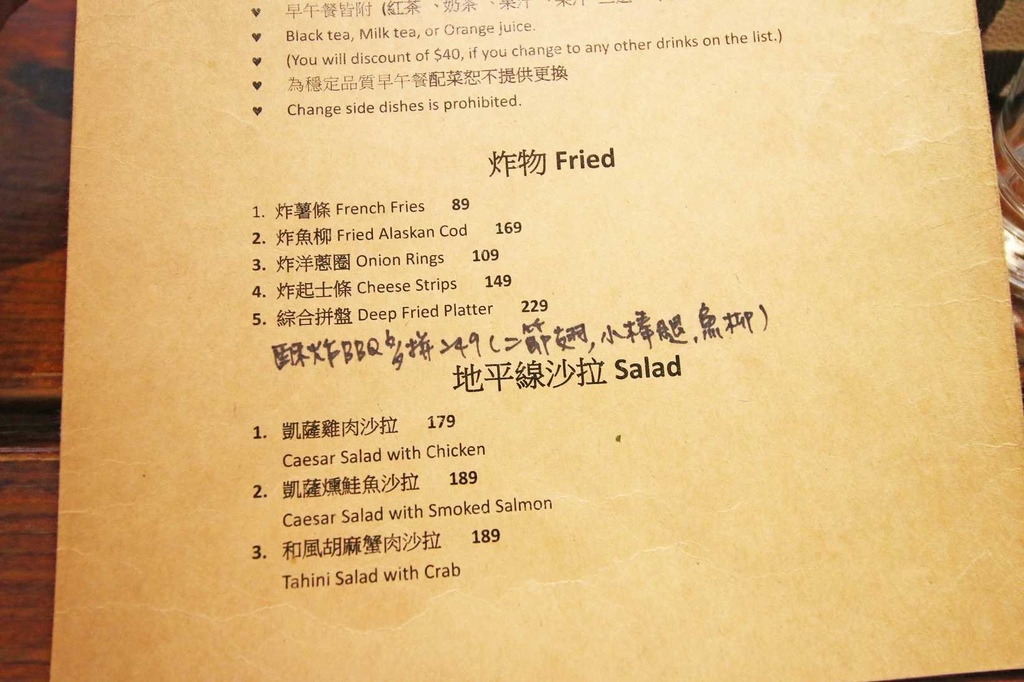 ♥ 早午餐皆附 (紅茶、奶茶、果汁
♥ Black tea, Milk tea, or Orange juice.
♥ (You will discount of $40, if you change to any other drinks on the list.)
♥ 為穩定品質早午餐配菜恕不提供更換
♥ Change side dishes is prohibited.
炸物 Fried
1. 炸薯條 French Fries 89
2. 炸魚柳 Fried Alaskan Cod 169
3. 炸洋蔥圈 Onion Rings 109
4. 炸起士條 Cheese Strips 149
5. 綜合拼盤 Deep Fried Platter 229
酥炸BBQ多拼 249 (二節翅, 小棒腿, 魚柳)
地平線沙拉 Salad
1. 凱薩雞肉沙拉 179
Caesar Salad with Chicken
2. 凱薩燻鮭魚沙拉 189
Caesar Salad with Smoked Salmon
3. 和風胡麻蟹肉沙拉 189
Tahini Salad with Crab